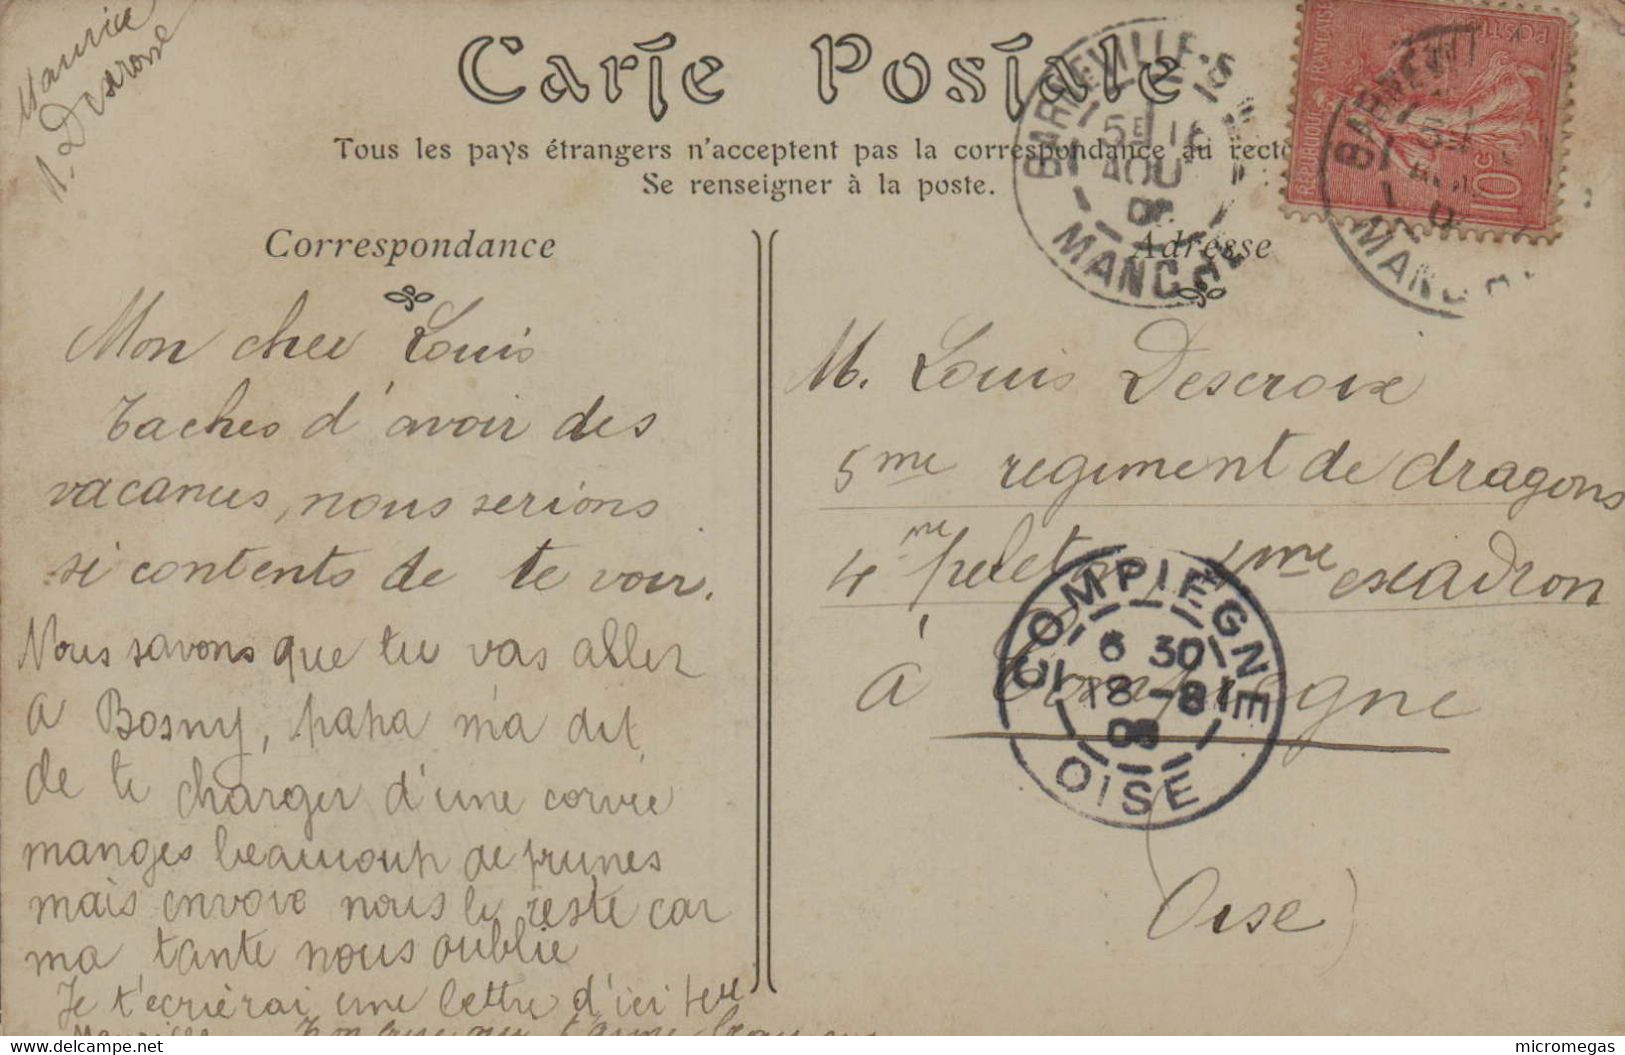 Carte Postale
Tous les pays étrangers n'acceptent pas la correspondance au recto
Se renseigner à la poste.
Correspondance
Adresse
Maurice
BARNEVILLE-S
5E 1
AOU
MANCHE
REPUBLIQUE FRANÇAISE
POSTES
10c
BARNEVI
MANC
Mon cher Louis
Taches d'avoir des
vacances, nous serions
si contents de te voir.
Nous savons que tu vas aller
a Bosny, papa m'a dit
de te charger d'une corvée
manges beaucoup de prunes
mais envoie nous le reste car
ma tante nous oublie
Je t'ecrièrai une lettre d'ici peu
M. Louis Descroix
5me regiment de dragons
4me peleton, 4me escadron
à Compiegne
(Oise)
COMPIÈGNE
6 30
18-8
08
OISE
www.delcampe.net
micromegas